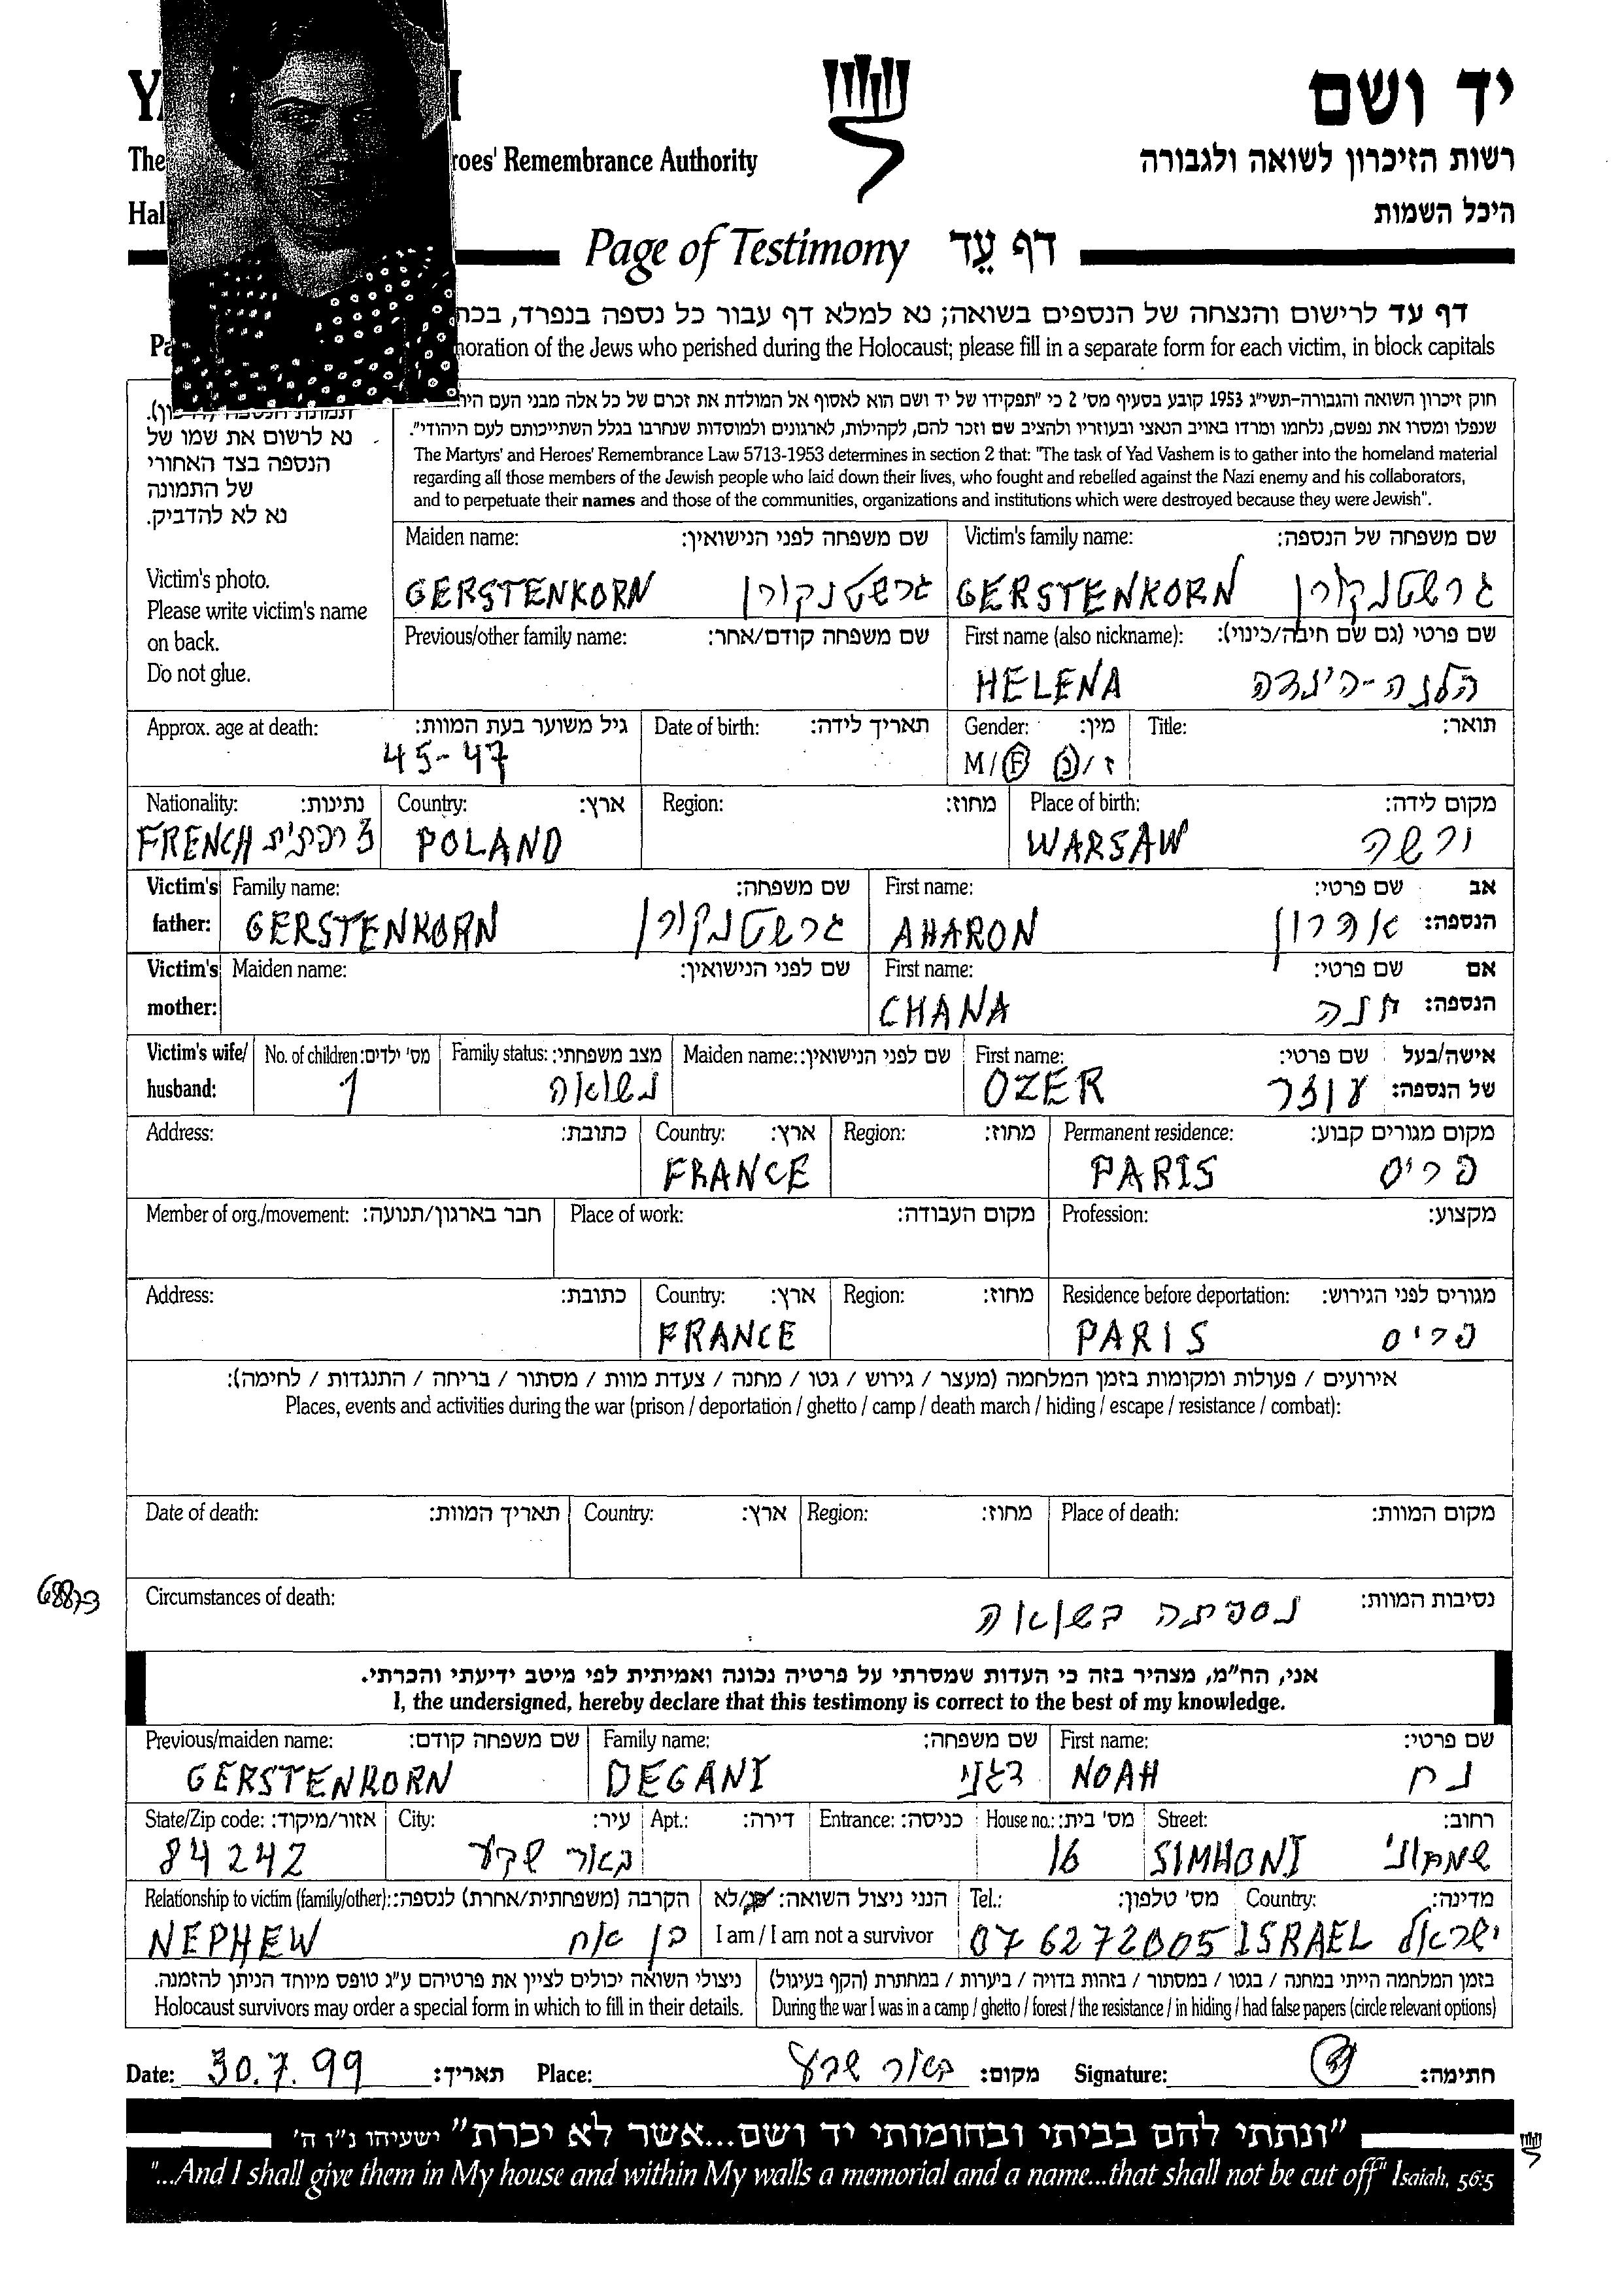 יד ושם
רשות הזיכרון לשואה ולגבורה
roes' Remembrance Authority
The
היכל השמות
Hal
Page of Testimony דף עֵד
דף עד לרישום והנצחה של הנספים בשואה; נא למלא דף עבור כל נספה בנפרד, בכת
noration of the Jews who perished during the Holocaust; please fill in a separate form for each victim, in block capitals
חוק זיכרון השואה והגבורה-תשי"ג 1953 קובע בסעיף מס' 2 כי "תפקידו של יד ושם הוא לאסוף אל המולדת את זכרם של כל אלה מבני העם היה
שנפלו ומסרו את נפשם, נלחמו ומרדו באויב הנאצי ובעוזריו ולהציב שם וזכר להם, לקהילות, לארגונים ולמוסדות שנחרבו בגלל השתייכותם לעם היהודי".
The Martyrs' and Heroes' Remembrance Law 5713-1953 determines in section 2 that: "The task of Yad Vashem is to gather into the homeland material
regarding all those members of the Jewish people who laid down their lives, who fought and rebelled against the Nazi enemy and his collaborators,
and to perpetuate their names and those of the communities, organizations and institutions which were destroyed because they were Jewish".
נא לרשום את שמו של
הנספה בצד האחורי
של התמונה
נא לא להדביק.
Victim's photo.
Please write victim's name
on back.
Do not glue.
Victim's family name: שם משפחה של הנספה:
GERSTENKORN גרשטנקורן
Maiden name: שם משפחה לפני הנישואין:
GERSTENKORN גרשטנקורן
First name (also nickname): שם פרטי (גם שם חיבה/כינוי):
HELENA הלנה-הינדה
Previous/other family name: שם משפחה קודם/אחר:
Title: תואר:
Gender: מין:
M/F נ/ז
Date of birth: תאריך לידה:
Approx. age at death: גיל משוער בעת המוות:
45-47
Place of birth: מקום לידה:
WARSAW ורשה
Region: מחוז:
Country: ארץ:
POLAND
Nationality: נתינות:
FRENCH צרפתית
Victim's father: אב הנספה:
First name: שם פרטי:
AHARON אהרון
Family name: שם משפחה:
GERSTENKORN גרשטנקורן
Victim's mother: אם הנספה:
First name: שם פרטי:
CHANA חנה
Maiden name: שם לפני הנישואין:
Victim's wife/ husband: אישה/בעל של הנספה:
First name: שם פרטי:
OZER עוזר
Maiden name: שם לפני הנישואין:
Family status: מצב משפחתי:
נשואה
No. of children: מס' ילדים:
1
Permanent residence: מקום מגורים קבוע:
PARIS פריס
Region: מחוז:
Country: ארץ:
FRANCE
Address: כתובת:
Profession: מקצוע:
Place of work: מקום העבודה:
Member of org./movement: חבר בארגון/תנועה:
Residence before deportation: מגורים לפני הגירוש:
PARIS פריס
Region: מחוז:
Country: ארץ:
FRANCE
Address: כתובת:
אירועים / פעולות ומקומות בזמן המלחמה (מעצר / גירוש / גטו / מחנה / צעדת מוות / מסתור / בריחה / התנגדות / לחימה):
Places, events and activities during the war (prison / deportation / ghetto / camp / death march / hiding / escape / resistance / combat):
Place of death: מקום המוות:
Region: מחוז:
Country: ארץ:
Date of death: תאריך המוות:
Circumstances of death: נסיבות המוות:
נספתה בשואה
אני, הח"מ, מצהיר בזה כי העדות שמסרתי על פרטיה נכונה ואמיתית לפי מיטב ידיעתי והכרתי.
I, the undersigned, hereby declare that this testimony is correct to the best of my knowledge.
First name: שם פרטי:
NOAH נח
Family name: שם משפחה:
DEGANI דגני
Previous/maiden name: שם משפחה קודם:
GERSTENKORN
Street: רחוב:
SIMHONI שמחוני
House no.: מס' בית:
16
Entrance: כניסה:
Apt.: דירה:
City: עיר:
באר שבע
State/Zip code: אזור/מיקוד:
84242
Country: מדינה:
ISRAEL ישראל
Tel.: מס' טלפון:
07 6272005
הנני ניצול השואה: כן/לא
I am / I am not a survivor
Relationship to victim (family/other): הקרבה (משפחתית/אחרת) לנספה:
NEPHEW בן אח
בזמן המלחמה הייתי במחנה / בגטו / במסתור / בזהות בדויה / ביערות / במחתרת (הקף בעיגול)
During the war I was in a camp / ghetto / forest / the resistance / in hiding / had false papers (circle relevant options)
ניצולי השואה יכולים לציין את פרטיהם ע"ג טופס מיוחד הניתן להזמנה.
Holocaust survivors may order a special form in which to fill in their details.
Date: 30.7.99 תאריך: Place: באר שבע מקום: Signature: חתימה:
"ונתתי להם בביתי ובחומותי יד ושם...אשר לא יכרת" ישעיהו נ"ו ה'
"...And I shall give them in My house and within My walls a memorial and a name...that shall not be cut off" Isaiah, 56:5